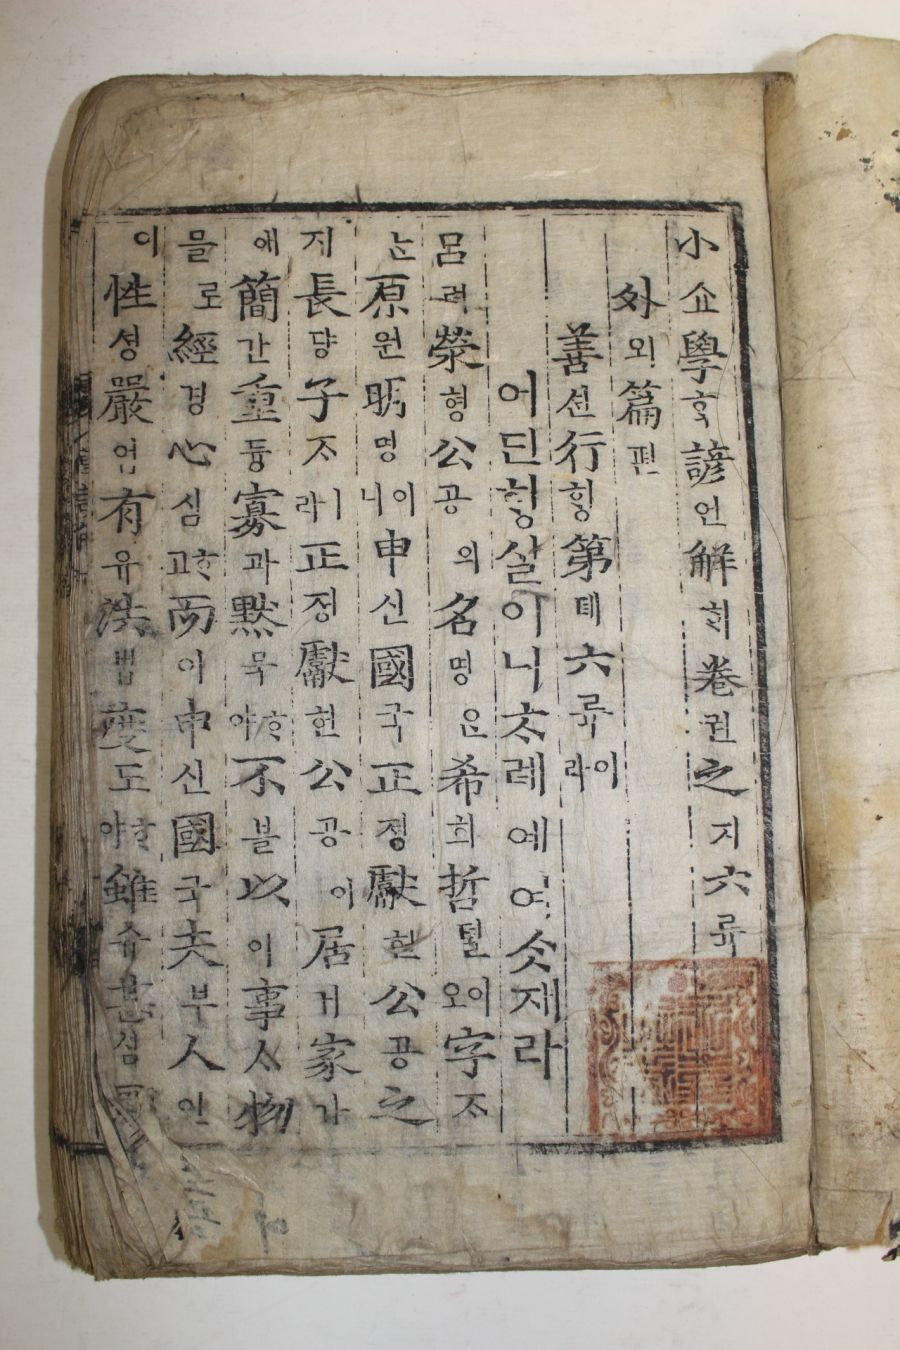 小쇼學ᄒᆞᆨ諺언解ᄒᆡ卷권之지六륙
外외篇편
善션行ᄒᆡᆼ第뎨六륙이라
어딘ᄒᆡᆼ실이니ᄎᆞ례예여ᄉᆞᆺ재라
呂려滎형公공의名명은希희哲텰이오字ᄌᆞ
ᄂᆞᆫ原원明명이니申신國국正졍獻헌公공之
지長댱子ᄌᆞㅣ라正졍獻헌公공이居거家가
애簡간重듕寡과默묵ᄒᆞ야不블以이事ᄉᆞ物
믈로經경心심ᄒᆞ고而이申신國국夫부人인
이性셩嚴엄有유法법度도ᄒᆞ야雖슈甚심